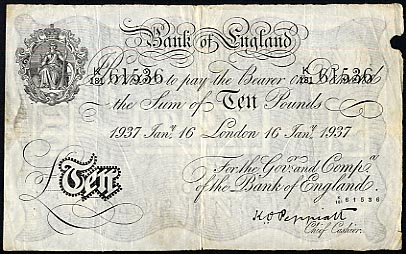 Bank of England
K/181 61536 K/181 61536
Promise to pay the Bearer on Demand
the Sum of Ten Pounds
1937 Janʸ 16 London 16 Janʸ 1937
For the Govʳ and Compᵃ
of the Bank of England.
£Ten
K/181 61536
K.O. Peppiatt
Chief Cashier.